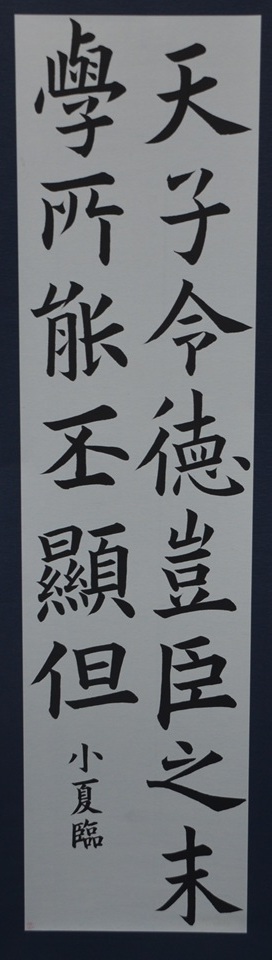 天子令德豈臣之末
學所能丕顯但
小夏臨